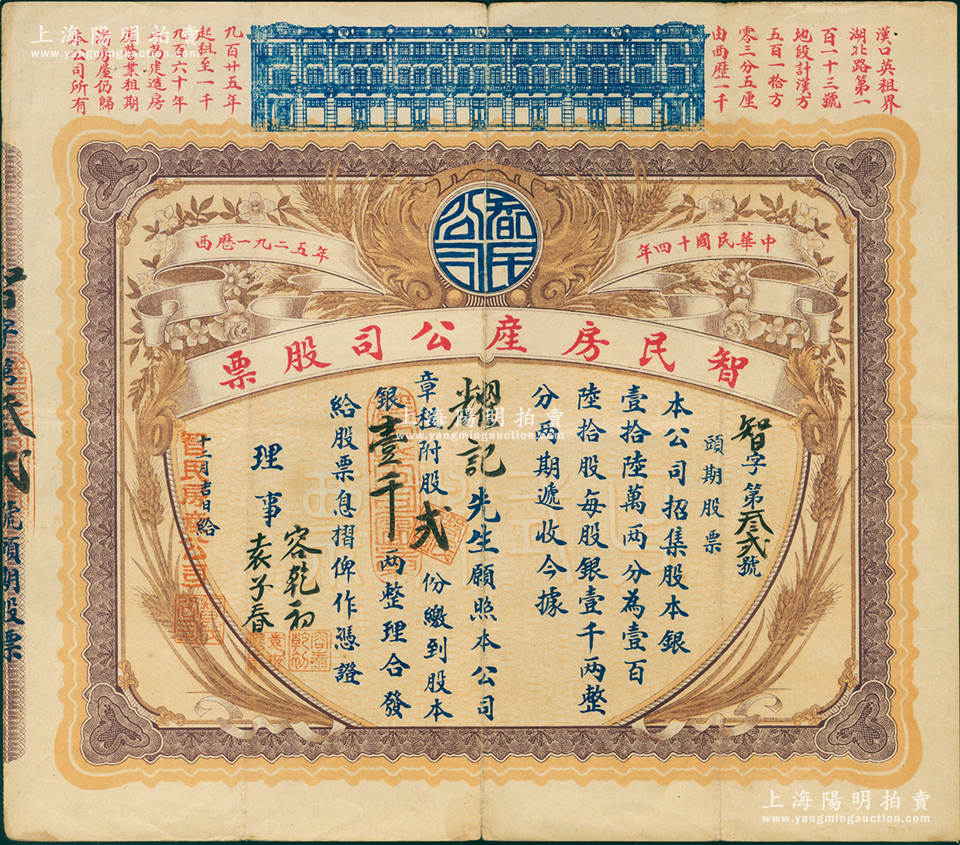 漢口英租界
湖北路第一
百一十三號
地段計漢方
五百一拾方
零三分五厘
由西歷一千
九百廿五年
起租至一千
九百六十年
本公司所有
智民公司
中華民國十四年
西曆一九二五年
智民房產公司股票
智字第叁弍號
頭期股票
本公司招集股本銀
壹拾陸萬兩分為壹百
陸拾股每股銀壹千兩整
分兩期遞收今據
耀記先生願照本公司
章程附股弍份繳到股本
銀壹千兩整理合發
給股票息摺俾作憑證
理事
容乾初
袁子春
十二月吉日給
號頭期股票
上海陽明拍賣
上海陽明拍賣
www.yangmingauction.com
上海陽明拍賣
www.yangmingauction.com